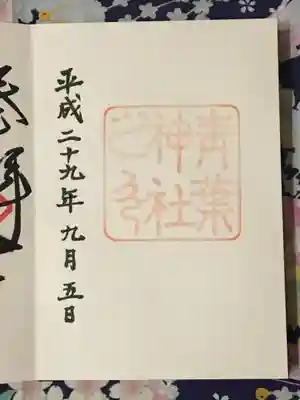 青葉
神社
之印
平成二十九年九月五日
奉拝